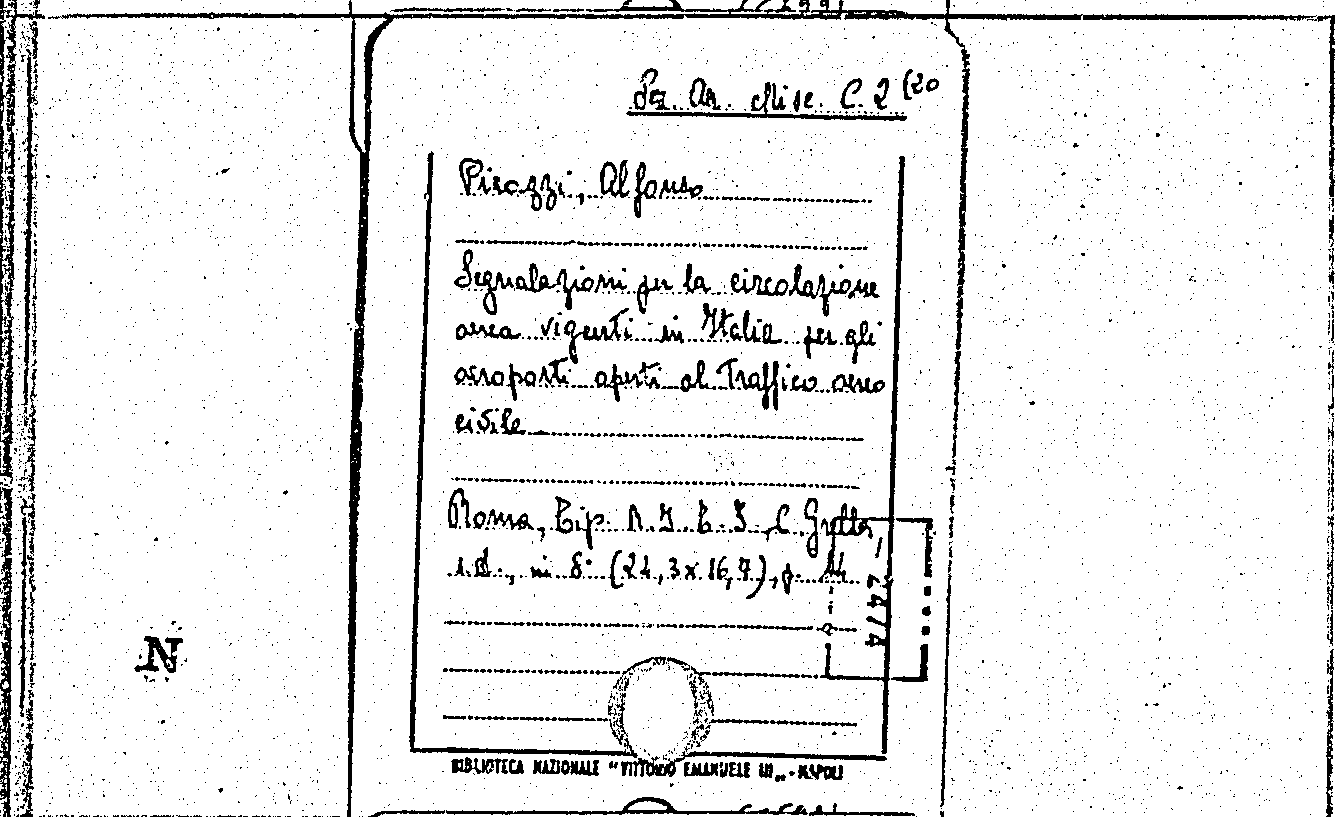 Sez. Ar. Misc. C. 2 (20
Pirozzi, Alfonso
Segnalazioni per la circolazione
aerea vigenti in Italia per gli
aeroporti aperti al Traffico aereo
civile
Roma, Tip. A.G.E.I., C.
s.d., in 8° (24,3x16,7), p.
2474
N
BIBLIOTECA NAZIONALE "VITTORIO EMANUELE III„ - NAPOLI